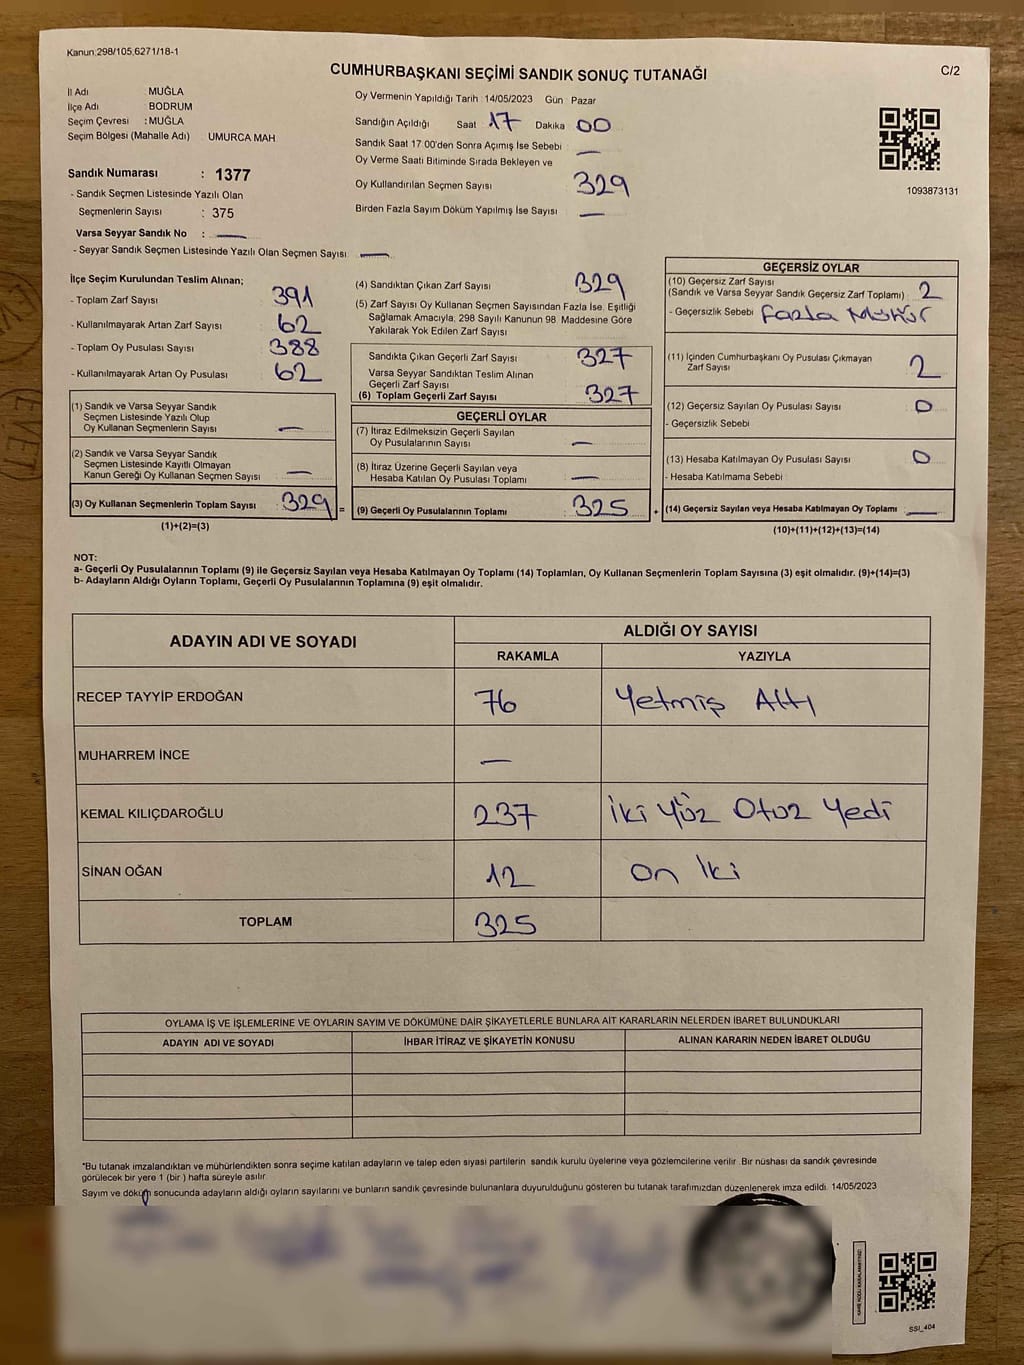 Kanun:298/105,6271/18-1
CUMHURBAŞKANI SEÇİMİ SANDIK SONUÇ TUTANAĞI
C/2
İl Adı : MUĞLA
İlçe Adı : BODRUM
Seçim Çevresi : MUĞLA
Seçim Bölgesi (Mahalle Adı) UMURCA MAH
Sandık Numarası : 1377
- Sandık Seçmen Listesinde Yazılı Olan
Seçmenlerin Sayısı : 375
Varsa Seyyar Sandık No : —
- Seyyar Sandık Seçmen Listesinde Yazılı Olan Seçmen Sayısı —
Oy Vermenin Yapıldığı Tarih 14/05/2023 Gün Pazar
Sandığın Açıldığı Saat 17 Dakika 00
Sandık Saat 17:00'den Sonra Açımış İse Sebebi —
Oy Verme Saati Bitiminde Sırada Bekleyen ve
Oy Kullandırılan Seçmen Sayısı 329
Birden Fazla Sayım Döküm Yapılmış İse Sayısı —
1093873131
İlçe Seçim Kurulundan Teslim Alınan;
- Toplam Zarf Sayısı 391
- Kullanılmayarak Artan Zarf Sayısı 62
- Toplam Oy Pusulası Sayısı 388
- Kullanılmayarak Artan Oy Pusulası 62
(1) Sandık ve Varsa Seyyar Sandık
Seçmen Listesinde Yazılı Olup
Oy Kullanan Seçmenlerin Sayısı —
(2) Sandık ve Varsa Seyyar Sandık
Seçmen Listesinde Kayıtlı Olmayan
Kanun Gereği Oy Kullanan Seçmen Sayısı —
(3) Oy Kullanan Seçmenlerin Toplam Sayısı : 329 =
(1)+(2)=(3)
(4) Sandıktan Çıkan Zarf Sayısı 329
(5) Zarf Sayısı Oy Kullanan Seçmen Sayısından Fazla İse, Eşitliği
Sağlamak Amacıyla; 298 Sayılı Kanunun 98. Maddesine Göre
Yakılarak Yok Edilen Zarf Sayısı
Sandıkta Çıkan Geçerli Zarf Sayısı 327
Varsa Seyyar Sandıktan Teslim Alınan
Geçerli Zarf Sayısı
(6) Toplam Geçerli Zarf Sayısı 327
GEÇERLİ OYLAR
(7) İtiraz Edilmeksizin Geçerli Sayılan
Oy Pusulalarının Sayısı —
(8) İtiraz Üzerine Geçerli Sayılan veya
Hesaba Katılan Oy Pusulası Toplamı —
(9) Geçerli Oy Pusulalarının Toplamı : 325 +
GEÇERSİZ OYLAR
(10) Geçersiz Zarf Sayısı
(Sandık ve Varsa Seyyar Sandık Geçersiz Zarf Toplamı) : 2
- Geçersizlik Sebebi Fazla Mühür
(11) İçinden Cumhurbaşkanı Oy Pusulası Çıkmayan
Zarf Sayısı 2
(12) Geçersiz Sayılan Oy Pusulası Sayısı 0
- Geçersizlik Sebebi
(13) Hesaba Katılmayan Oy Pusulası Sayısı 0
- Hesaba Katılmama Sebebi
(14) Geçersiz Sayılan veya Hesaba Katılmayan Oy Toplamı : —
(10)+(11)+(12)+(13)=(14)
NOT:
a- Geçerli Oy Pusulalarının Toplamı (9) ile Geçersiz Sayılan veya Hesaba Katılmayan Oy Toplamı (14) Toplamları, Oy Kullanan Seçmenlerin Toplam Sayısına (3) eşit olmalıdır. (9)+(14)=(3)
b- Adayların Aldığı Oyların Toplamı, Geçerli Oy Pusulalarının Toplamına (9) eşit olmalıdır.
ADAYIN ADI VE SOYADI ALDIĞI OY SAYISI
RAKAMLA YAZIYLA
RECEP TAYYİP ERDOĞAN 76 Yetmiş Altı
MUHARREM İNCE —
KEMAL KILIÇDAROĞLU 237 İki Yüz Otuz Yedi
SİNAN OĞAN 12 On İki
TOPLAM 325
OYLAMA İŞ VE İŞLEMLERİNE VE OYLARIN SAYIM VE DÖKÜMÜNE DAİR ŞİKAYETLERLE BUNLARA AİT KARARLARIN NELERDEN İBARET BULUNDUKLARI
ADAYIN ADI VE SOYADI İHBAR İTİRAZ VE ŞİKAYETİN KONUSU ALINAN KARARIN NEDEN İBARET OLDUĞU
*Bu tutanak imzalandıktan ve mühürlendikten sonra seçime katılan adayların ve talep eden siyasi partilerin sandık kurulu üyelerine veya gözlemcilerine verilir. Bir nüshası da sandık çevresinde
görülecek bir yere 1 (bir ) hafta süreyle asılır.
Sayım ve döküm sonucunda adayların aldığı oyların sayılarını ve bunların sandık çevresinde bulunanlara duyurulduğunu gösteren bu tutanak tarafımızdan düzenlenerek imza edildi. 14/05/2023
KARE KODU KARALAMAYINIZ!
SSI_404
EVET